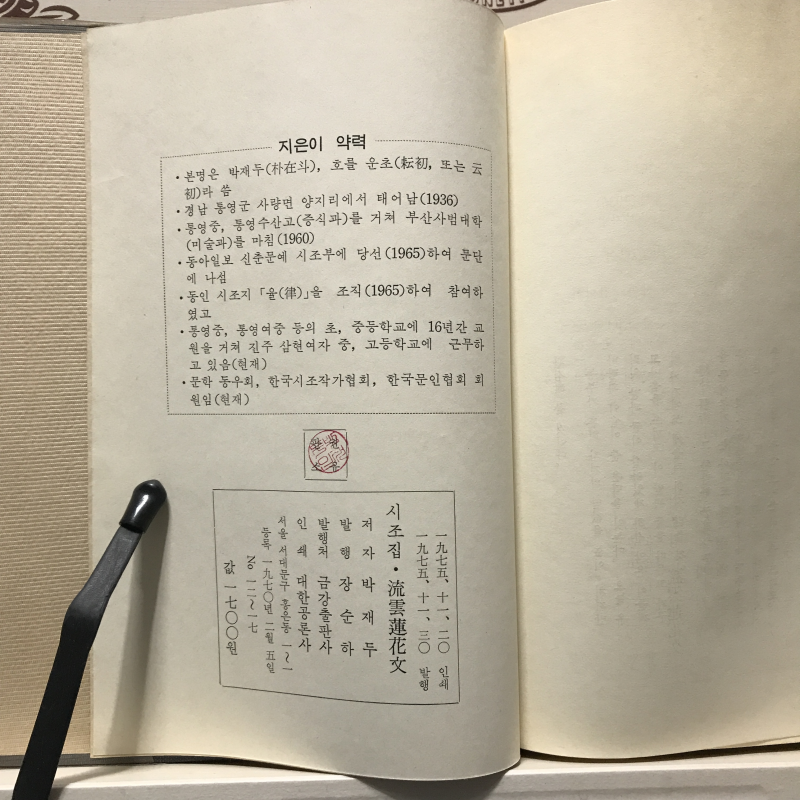 지은이 약력
• 본명은 박재두(朴在斗), 호를 운초(耘初, 또는 云
初)라 씀
• 경남 통영군 사량면 양지리에서 태어남(1936)
• 통영중, 통영수산고(증식과)를 거쳐 부산사범대학
(미술과)를 마침(1960)
• 동아일보 신춘문예 시조부에 당선(1965)하여 문단
에 나섬
• 동인 시조지 「율(律)」을 조직(1965)하여 참여하
였고
• 통영중, 통영여중 등의 초, 중등학교에 16년간 교
원을 거쳐 진주 삼현여자 중, 고등학교에 근무하
고 있음(현재)
• 문학 동우회, 한국시조작가협회, 한국문인협회 회
원임(현재)
一九七五、十一、二〇 인쇄
一九七五、十一、三〇 발행
시조집•流雲蓮花文
저 자 박 재 두
발 행 장 순 하
발행처 금강출판사
인 쇄 대한공론사
서울 서대문구 홍은동 一~一
등록 一九七〇년 二월 五일
No 一二~一七
값 一七〇〇원